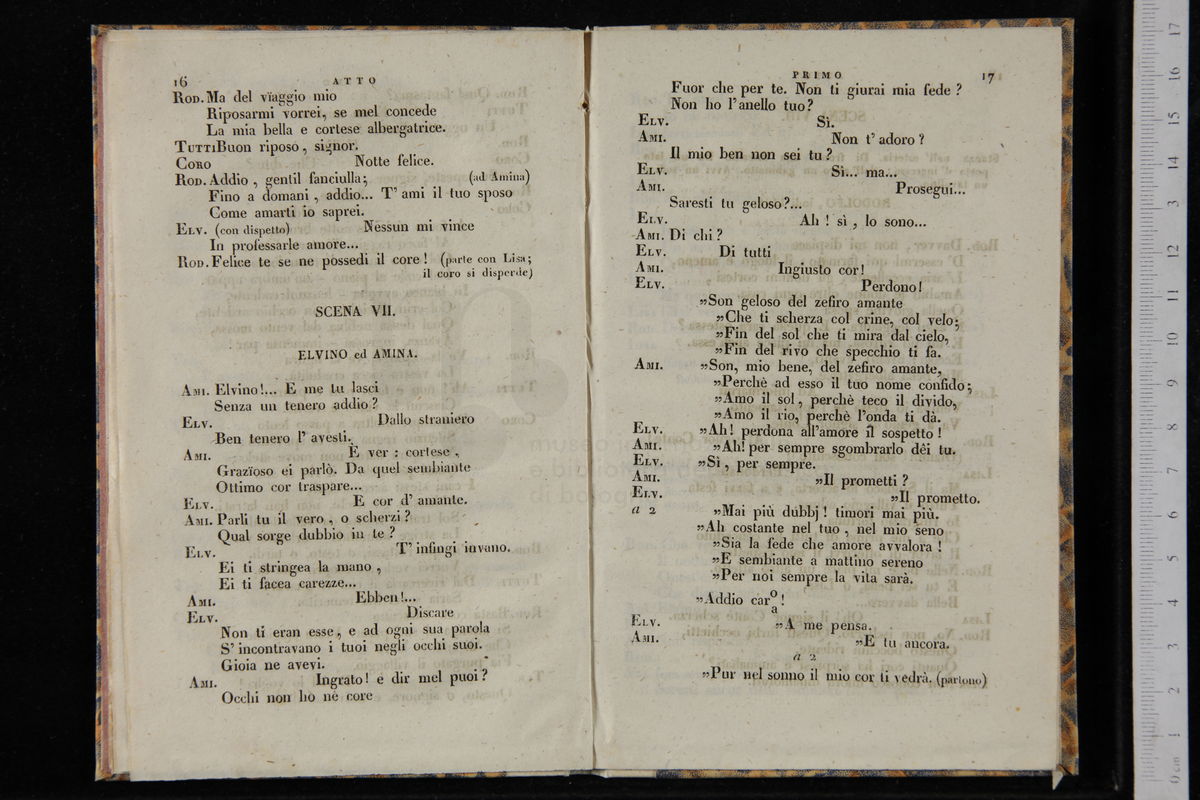 16 ATTO
ROD. Ma del vïaggio mio
Riposarmi vorrei, se mel concede
La mia bella e cortese albergatrice.
TUTTI Buon riposo, signor.
CORO Notte felice.
ROD. Addio, gentil fanciulla; (ad Amina)
Fino a domani, addio... T' ami il tuo sposo
Come amarti io saprei.
ELV. (con dispetto) Nessun mi vince
In professarle amore...
ROD. Felice te se ne possedi il core! (parte con Lisa;
il coro si disperde)
SCENA VII.
ELVINO ed AMINA.
AMI. Elvino!... E me tu lasci
Senza un tenero addio?
ELV. Dallo straniero
Ben tenero l' avesti.
AMI. È ver: cortese,
Grazïoso ei parlò. Da quel sembiante
Ottimo cor traspare...
ELV. E cor d' amante.
AMI. Parli tu il vero, o scherzi?
Qual sorge dubbio in te?
ELV. T' infingi invano.
Ei ti stringea la mano,
Ei ti facea carezze...
AMI. Ebben!...
ELV. Discare
Non ti eran esse, e ad ogni sua parola
S' incontravano i tuoi negli occhi suoi.
Gioia ne avevi.
AMI. Ingrato! e dir mel puoi?
Occhi non ho nè core
PRIMO 17
Fuor che per te. Non ti giurai mia fede?
Non ho l' anello tuo?
ELV. Sì.
AMI. Non t' adoro?
Il mio ben non sei tu?
ELV. Sì... ma...
AMI. Prosegui...
Saresti tu geloso?...
ELV. Ah! sì, lo sono...
AMI. Di chi?
ELV. Di tutti
AMI. Ingiusto cor!
ELV. Perdono!
"Son geloso del zefiro amante
"Che ti scherza col crine, col velo;
"Fin del sol che ti mira dal cielo,
"Fin del rivo che specchio ti fa.
AMI. "Son, mio bene, del zefiro amante,
"Perchè ad esso il tuo nome confido;
"Amo il sol, perchè teco il divido,
"Amo il rio, perchè l'onda ti dà.
ELV. "Ah! perdona all'amore il sospetto!
AMI. "Ah! per sempre sgombrarlo dêi tu.
ELV. "Sì, per sempre.
AMI. "Il prometti?
ELV. "Il prometto.
a 2 "Mai più dubbj! timori mai più.
"Ah costante nel tuo, nel mio seno
"Sia la fede che amore avvalora!
"E sembiante a mattino sereno
"Per noi sempre la vita sarà.
"Addio caro!
a
ELV. "A me pensa.
AMI. "E tu ancora.
a 2
"Pur nel sonno il mio cor ti vedrà. (partono)